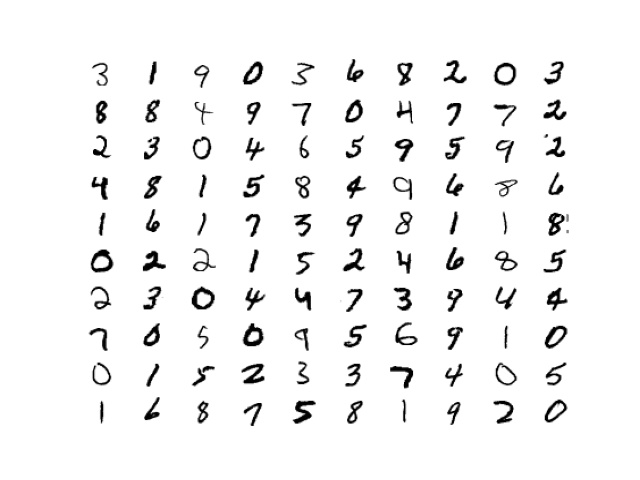 3 1 9 0 3 6 8 2 0 3
8 8 4 9 7 0 4 7 7 2
2 3 0 4 6 5 9 5 9 2
4 8 1 5 8 4 9 6 8 6
1 6 1 7 3 9 8 1 1 8
0 2 2 1 5 2 4 6 8 5
2 3 0 4 4 7 3 9 4 4
7 0 5 0 9 5 6 9 1 0
0 1 5 2 3 3 7 4 0 5
1 6 8 7 5 8 1 9 2 0